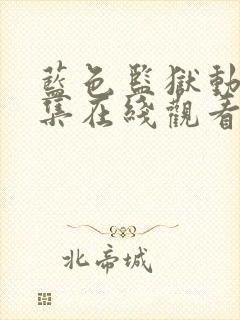 藍色監獄動
集在綫觀看
北帝城